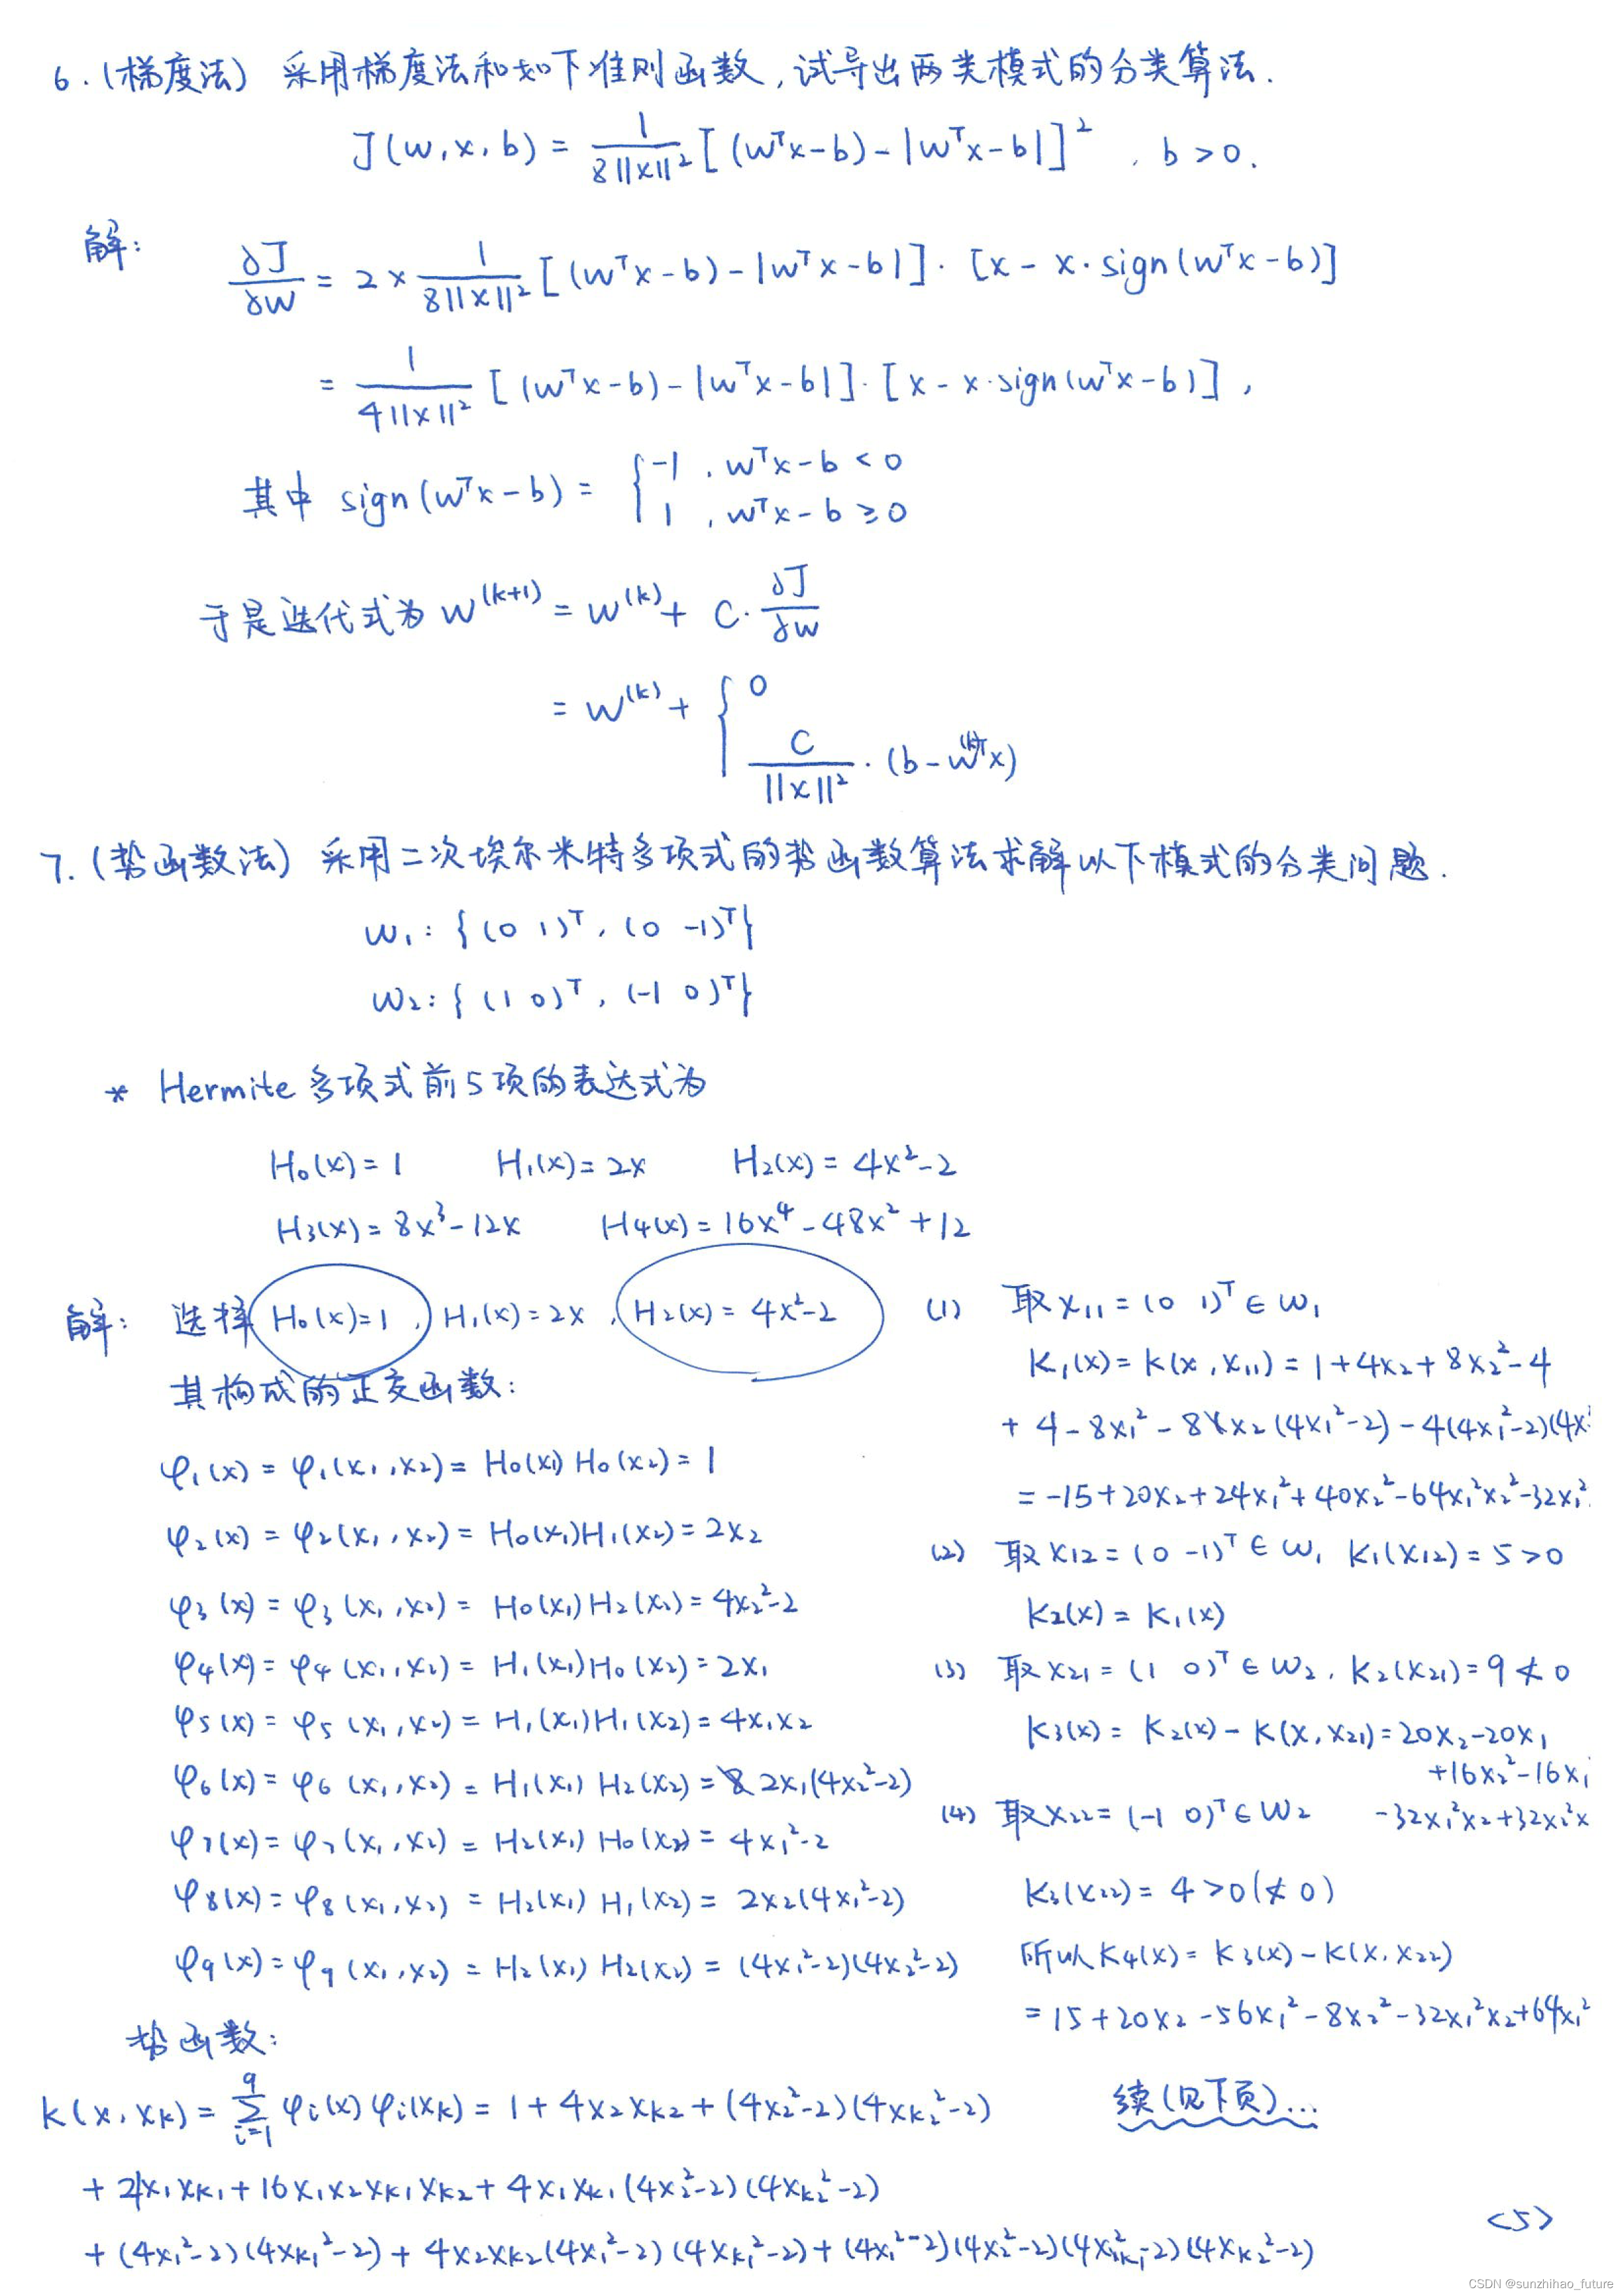 6. (梯度法) 采用梯度法和如下准则函数, 试导出两类模式的分类算法.
J(w, x, b) = 1/(8||x||²) [(wᵀx-b) - |wᵀx-b|]², b > 0.
解: ∂J/∂w = 2 × 1/(8||x||²) [(wᵀx-b) - |wᵀx-b|] · [x - x·sign(wᵀx-b)]
= 1/(4||x||²) [(wᵀx-b) - |wᵀx-b|] · [x - x·sign(wᵀx-b)],
其中 sign(wᵀx-b) = { -1, wᵀx-b < 0
1, wᵀx-b ≥ 0
于是迭代式为 w⁽ᵏ⁺¹⁾ = w⁽ᵏ⁾ + C · ∂J/∂w
= w⁽ᵏ⁾ + { 0
C/||x||² · (b - w⁽ᵏ⁾ᵀx)
7. (势函数法) 采用二次埃尔米特多项式的势函数算法求解以下模式的分类问题.
w₁: {(0 1)ᵀ, (0 -1)ᵀ}
w₂: {(1 0)ᵀ, (-1 0)ᵀ}
* Hermite 多项式前5项的表达式为
H₀(x) = 1 H₁(x) = 2x H₂(x) = 4x²-2
H₃(x) = 8x³-12x H₄(x) = 16x⁴-48x²+12
解: 选择 H₀(x)=1, H₁(x)=2x, H₂(x)=4x²-2
其构成的正交函数:
φ₁(x) = φ₁(x₁,x₂) = H₀(x₁)H₀(x₂) = 1
φ₂(x) = φ₂(x₁,x₂) = H₀(x₁)H₁(x₂) = 2x₂
φ₃(x) = φ₃(x₁,x₂) = H₀(x₁)H₂(x₂) = 4x₂²-2
φ₄(x) = φ₄(x₁,x₂) = H₁(x₁)H₀(x₂) = 2x₁
φ₅(x) = φ₅(x₁,x₂) = H₁(x₁)H₁(x₂) = 4x₁x₂
φ₆(x) = φ₆(x₁,x₂) = H₁(x₁)H₂(x₂) = 2x₁(4x₂²-2)
φ₇(x) = φ₇(x₁,x₂) = H₂(x₁)H₀(x₂) = 4x₁²-2
φ₈(x) = φ₈(x₁,x₂) = H₂(x₁)H₁(x₂) = 2x₂(4x₁²-2)
φ₉(x) = φ₉(x₁,x₂) = H₂(x₁)H₂(x₂) = (4x₁²-2)(4x₂²-2)
势函数:
K(x, xₖ) = Σᵢ₌₁⁹ φᵢ(x)φᵢ(xₖ) = 1+4x₂xₖ₂+(4x₂²-2)(4xₖ₂²-2)
+ 4x₁xₖ₁+16x₁x₂xₖ₁xₖ₂+4x₁xₖ₁(4x₂²-2)(4xₖ₂²-2)
+ (4x₁²-2)(4xₖ₁²-2)+4x₂xₖ₂(4x₁²-2)(4xₖ₁²-2)+(4x₁²-2)(4x₂²-2)(4xₖ₁²-2)(4xₖ₂²-2)
(1) 取 x₁₁ = (0 1)ᵀ ∈ w₁
K₁(x) = K(x, x₁₁) = 1+4x₂+8x₂²-4
+ 4-8x₁²-8x₂(4x₁²-2)-4(4x₁²-2)(4x
= -15+20x₂+24x₁²+40x₂²-64x₁²x₂²-32x₁²
(2) 取 x₁₂ = (0 -1)ᵀ ∈ w₁ K₁(x₁₂) = 5 > 0
K₂(x) = K₁(x)
(3) 取 x₂₁ = (1 0)ᵀ ∈ w₂, K₂(x₂₁) = 9 ≮ 0
K₃(x) = K₂(x) - K(x, x₂₁) = 20x₂-20x₁
+16x₂²-16x₁
-32x₁²x₂+32x₂²x
(4) 取 x₂₂ = (-1 0)ᵀ ∈ w₂
K₃(x₂₂) = 4 > 0 (≮ 0)
所以 K₄(x) = K₃(x) - K(x, x₂₂)
= 15+20x₂-56x₁²-8x₂²-32x₁²x₂+64x₁²
续(见下页)...
<5>
CSDN @sunzhihao_future